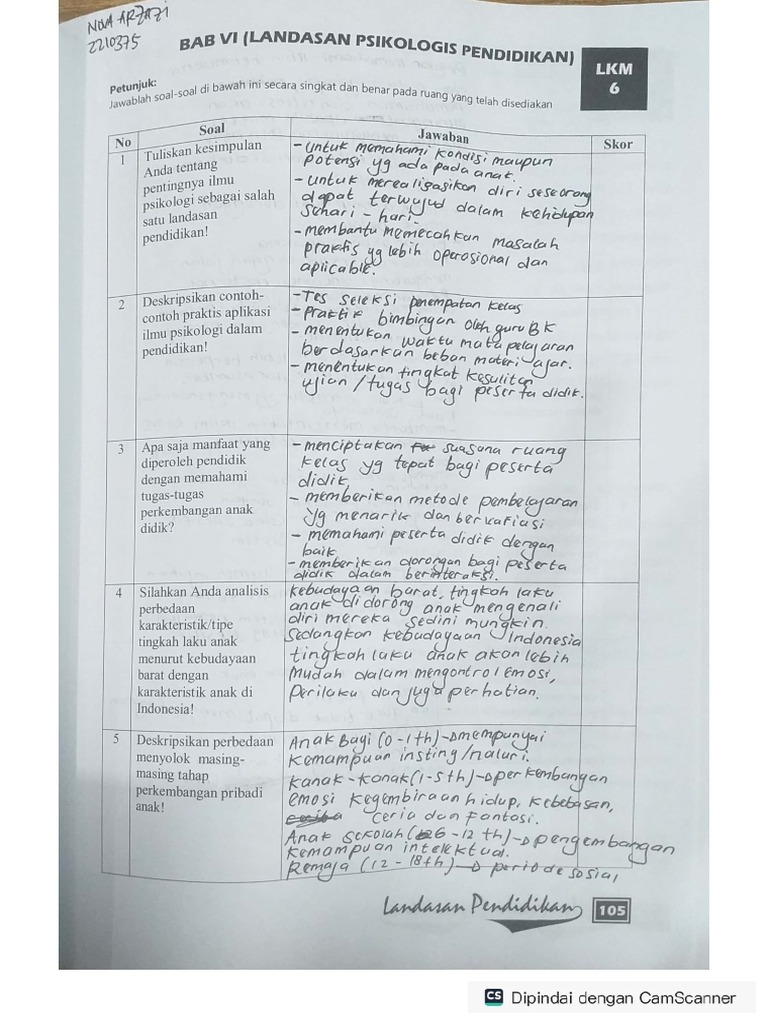 NOVA ARZAZI
2210375
BAB VI (LANDASAN PSIKOLOGIS PENDIDIKAN)
LKM
6
Petunjuk:
Jawablah soal-soal di bawah ini secara singkat dan benar pada ruang yang telah disediakan
No
Soal
Jawaban
Skor
1
Tuliskan kesimpulan
Anda tentang
pentingnya ilmu
psikologi sebagai salah
satu landasan
pendidikan!
- untuk memahami kondisi maupun
potensi yg ada pada anak.
- untuk merealisasikan diri seseorang
dapat terwujud dalam kehidupan
sehari - hari.
- membantu memecahkan masalah
praktis yg lebih operosional dan
aplicable.
2
Deskripsikan contoh-
contoh praktis aplikasi
ilmu psikologi dalam
pendidikan!
- Tes seleksi penempatan kelas
- Praktik bimbingan oleh guru BK
- menentukan waktu mata pelajaran
berdasarkan beban materi ajar.
- menentukan tingkat kesulitan
ujian / tugas bagi peserta didik.
3
Apa saja manfaat yang
diperoleh pendidik
dengan memahami
tugas-tugas
perkembangan anak
didik?
- menciptakan suasana ruang
kelas yg tepat bagi peserta
didik
- memberikan metode pembelajaran
yg menarik dan bervariasi
- memahami peserta didik dengan
baik
- memberikan dorongan bagi peserta
didik dalam berinteraksi.
4
Silahkan Anda analisis
perbedaan
karakteristik/tipe
tingkah laku anak
menurut kebudayaan
barat dengan
karakteristik anak di
Indonesia!
kebudayaan barat, tingkah laku
anak didorong anak mengenali
diri mereka sedini mungkin.
Sedangkan kebudayaan Indonesia
tingkah laku anak akan lebih
mudah dalam mengontrol emosi,
perilaku dan juga perhatian.
5
Deskripsikan perbedaan
menyolok masing-
masing tahap
perkembangan pribadi
anak!
Anak Bayi (0-1th) → mempunyai
kemampuan insting/naluri.
kanak-kanak (1-5th) → perkembangan
emosi kegembiraan hidup, kebebasan,
ceria dan fantasi.
Anak sekolah (6-12 th) → pengembangan
kemampuan intelektual.
Remaja (12-18th) → periode sosial
Landasan Pendidikan
105
CS Dipindai dengan CamScanner